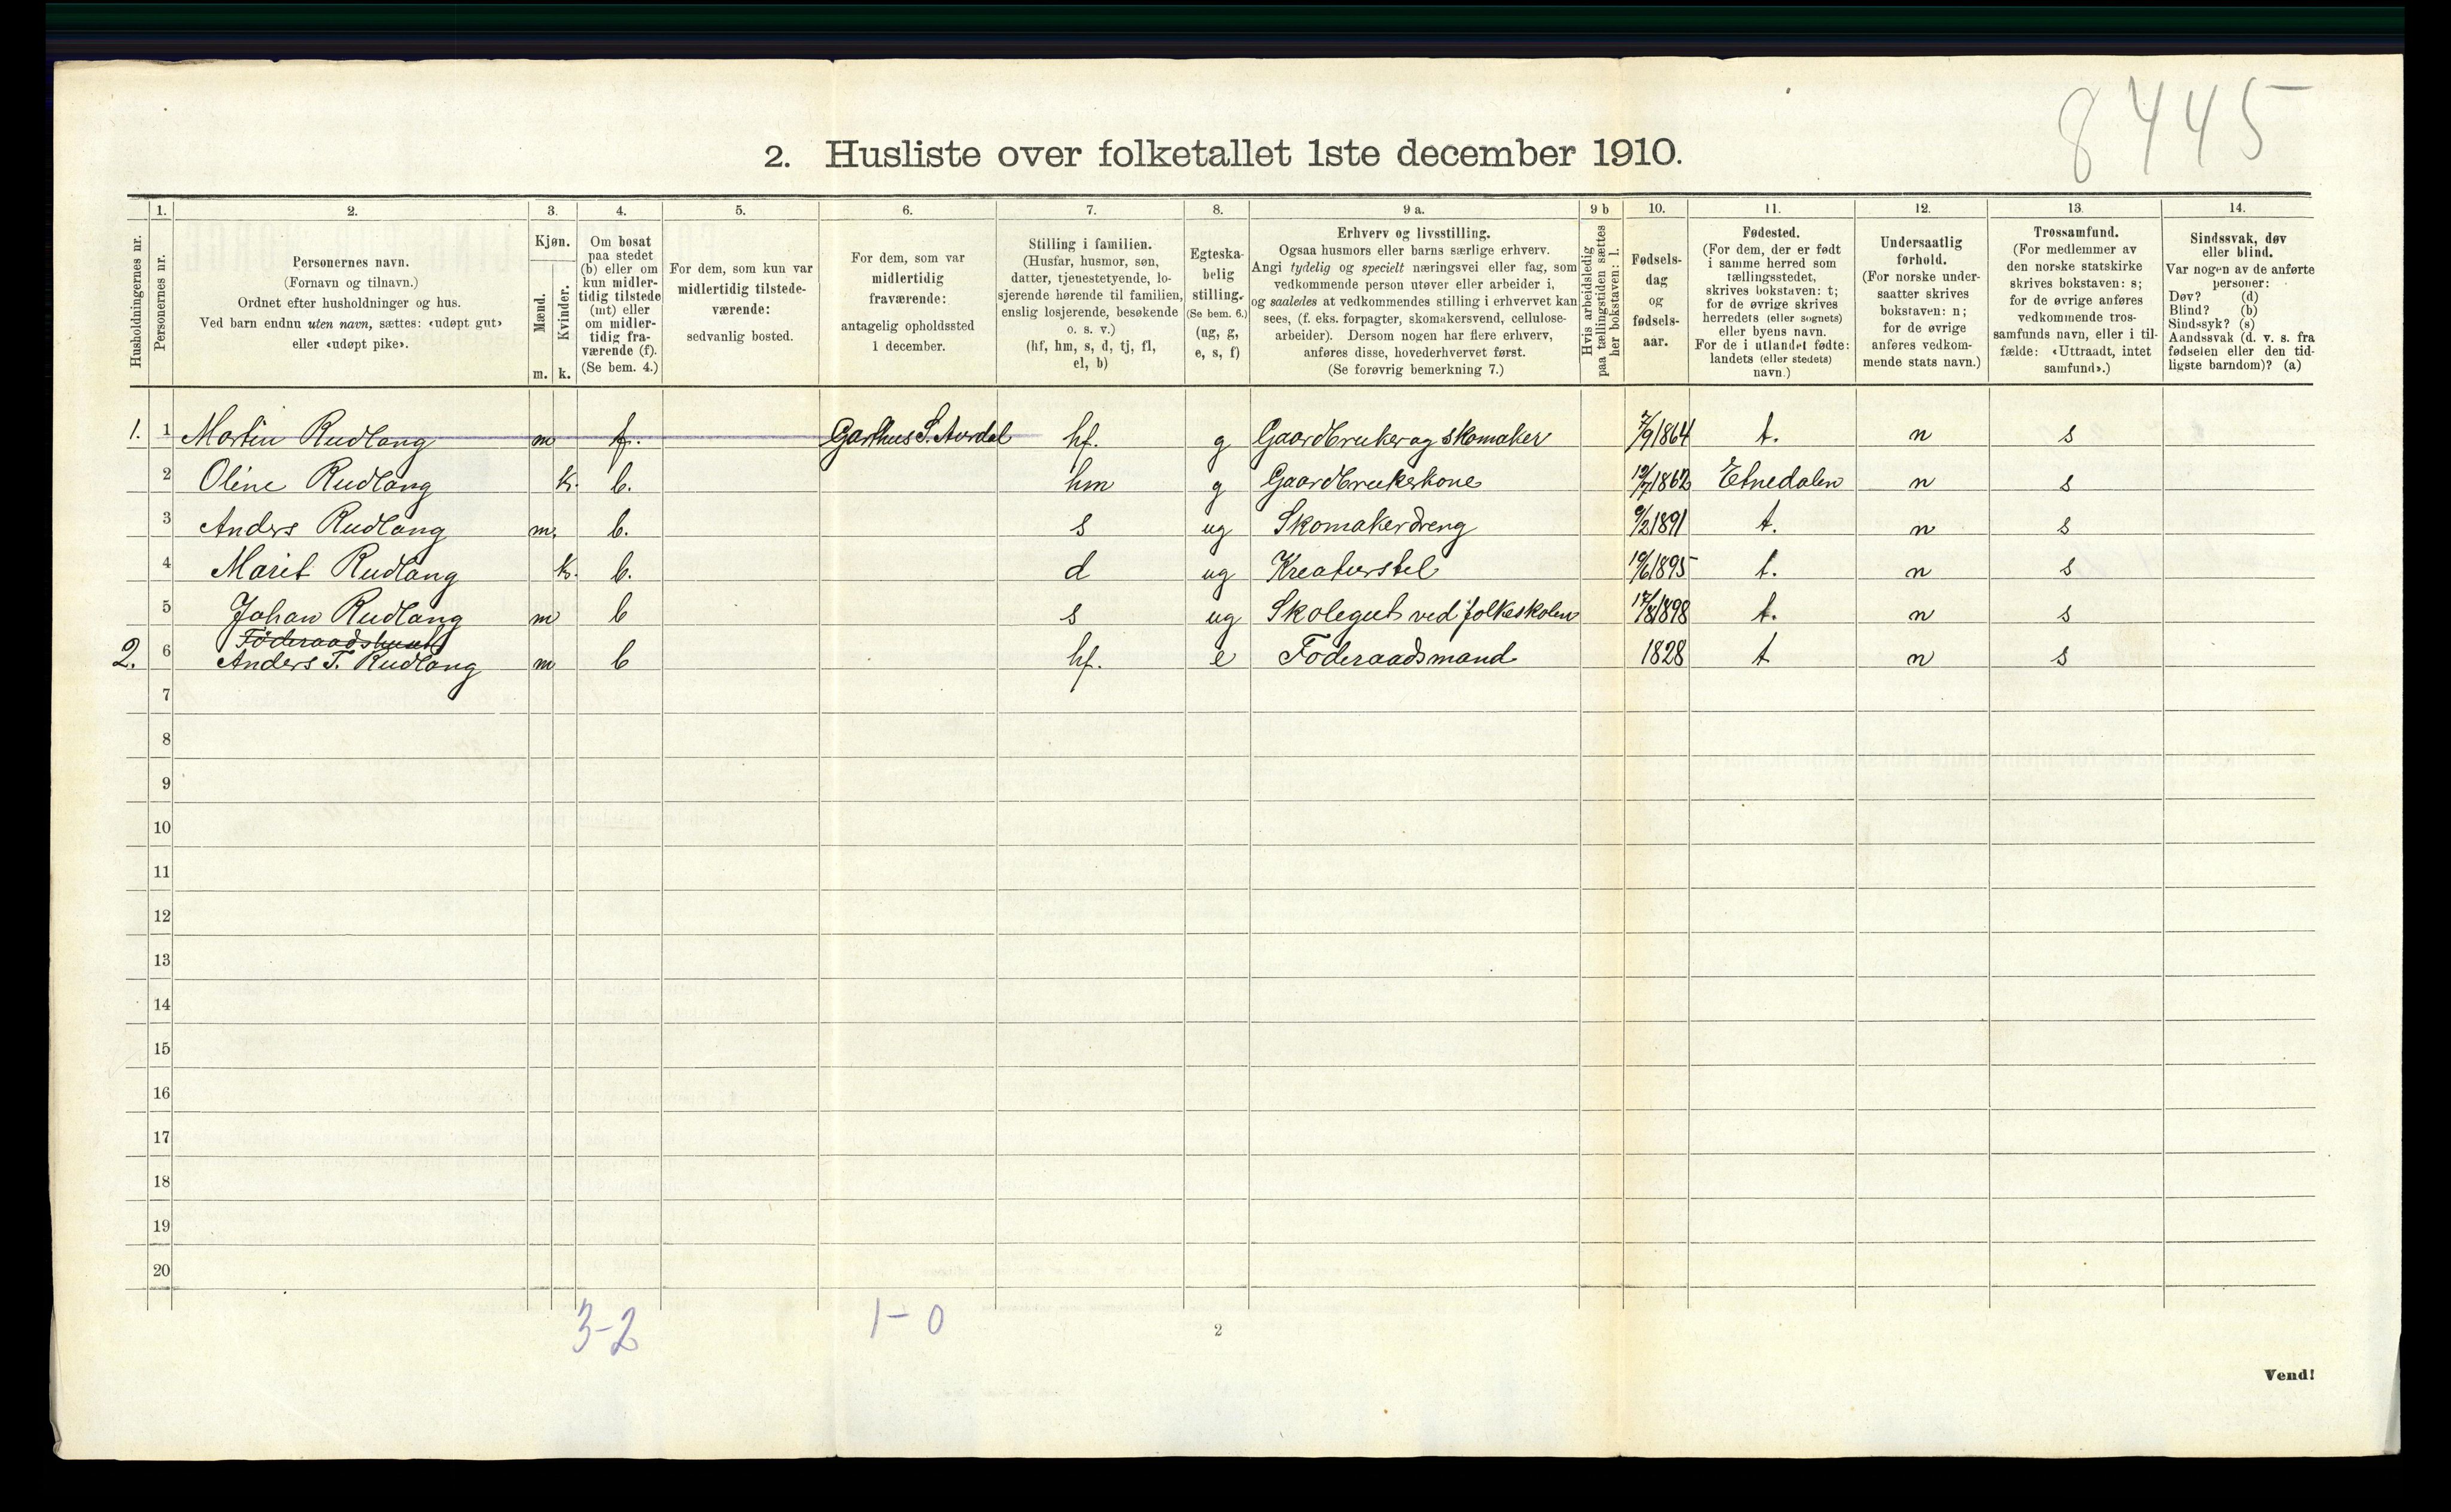 8445
2. Husliste over folketallet 1ste december 1910.
Husholdningernes nr.
1.
Personernes nr.
2.
Personernes navn.
(Fornavn og tilnavn.)
Ordnet efter husholdninger og hus.
Ved barn endnu uten navn, sættes: «udøpt gut»
eller «udøpt pike».
3.
Kjøn.
Mænd.
Kvinder.
m. k.
4.
Om bosat
paa stedet
(b) eller om
kun midler-
tidig tilstede
(mt) eller
om midler-
tidig fra-
værende (f).
(Se bem. 4.)
5.
For dem, som kun var
midlertidig tilstede-
værende:
sedvanlig bosted.
6.
For dem, som var
midlertidig
fraværende:
antagelig opholdssted
1 december.
7.
Stilling i familien.
(Husfar, husmor, søn,
datter, tjenestetyende, lo-
sjerende hørende til familien,
enslig losjerende, besøkende
o. s. v.)
(hf, hm, s, d, tj, fl,
el, b)
8.
Egteska-
belig
stilling.
(Se bem. 6.)
(ug, g,
e, s, f)
9 a.
Erhverv og livsstilling.
Ogsaa husmors eller barns særlige erhverv.
Angi tydelig og specielt næringsvei eller fag, som
vedkommende person utøver eller arbeider i,
og saaledes at vedkommendes stilling i erhvervet kan
sees, (f. eks. forpagter, skomakersvend, cellulose-
arbeider). Dersom nogen har flere erhverv,
anføres disse, hovederhvervet først.
(Se forøvrig bemerkning 7.)
9 b
Hvis arbeidsledig
paa tællingstiden sættes
her bokstaven: l.
10.
Fødsels-
dag
og
fødsels-
aar.
11.
Fødested.
(For dem, der er født
i samme herred som
tællingsstedet,
skrives bokstaven: t;
for de øvrige skrives
herredets (eller sognets)
eller byens navn.
For de i utlandet fødte:
landets (eller stedets)
navn.)
12.
Undersaatlig
forhold.
(For norske under-
saatter skrives
bokstaven: n;
for de øvrige
anføres vedkom-
mende stats navn.)
13.
Trossamfund.
(For medlemmer av
den norske statskirke
skrives bokstaven: s;
for de øvrige anføres
vedkommende tros-
samfunds navn, eller i til-
fælde: «Uttraadt, intet
samfund».)
14.
Sindssvak, døv
eller blind.
Var nogen av de anførte
personer:
Døv? (d)
Blind? (b)
Sindssyk? (s)
Aandssvak (d. v. s. fra
fødselen eller den tid-
ligste barndom)? (a)
1. 1 Martin Rudlang m f. Garthus S. Aurdal hf. g Gaardbruker og skomaker 7/9 1864 t. n s
2 Oline Rudlang k. b. hm g Gaardbrukerkone 1862 Etnedalen n s
3 Anders Rudlang m. b. s ug Skomakerdreng 9/2 1891 t. n s
4 Marit Rudlang k. b. d ug Kreaturstel 19/6 1895 t. n s
5 Johan Rudlang m b s ug Skolegut ved folkeskolen 17/8 1898 t. n s
Föderaadshuset
2. 6 Anders T. Rudlang m b hf. e Föderaadsmand 1828 t n s
7
8
9
10
11
12
13
14
15
16
17
18
19
20
3-2 1-0
2
Vend!